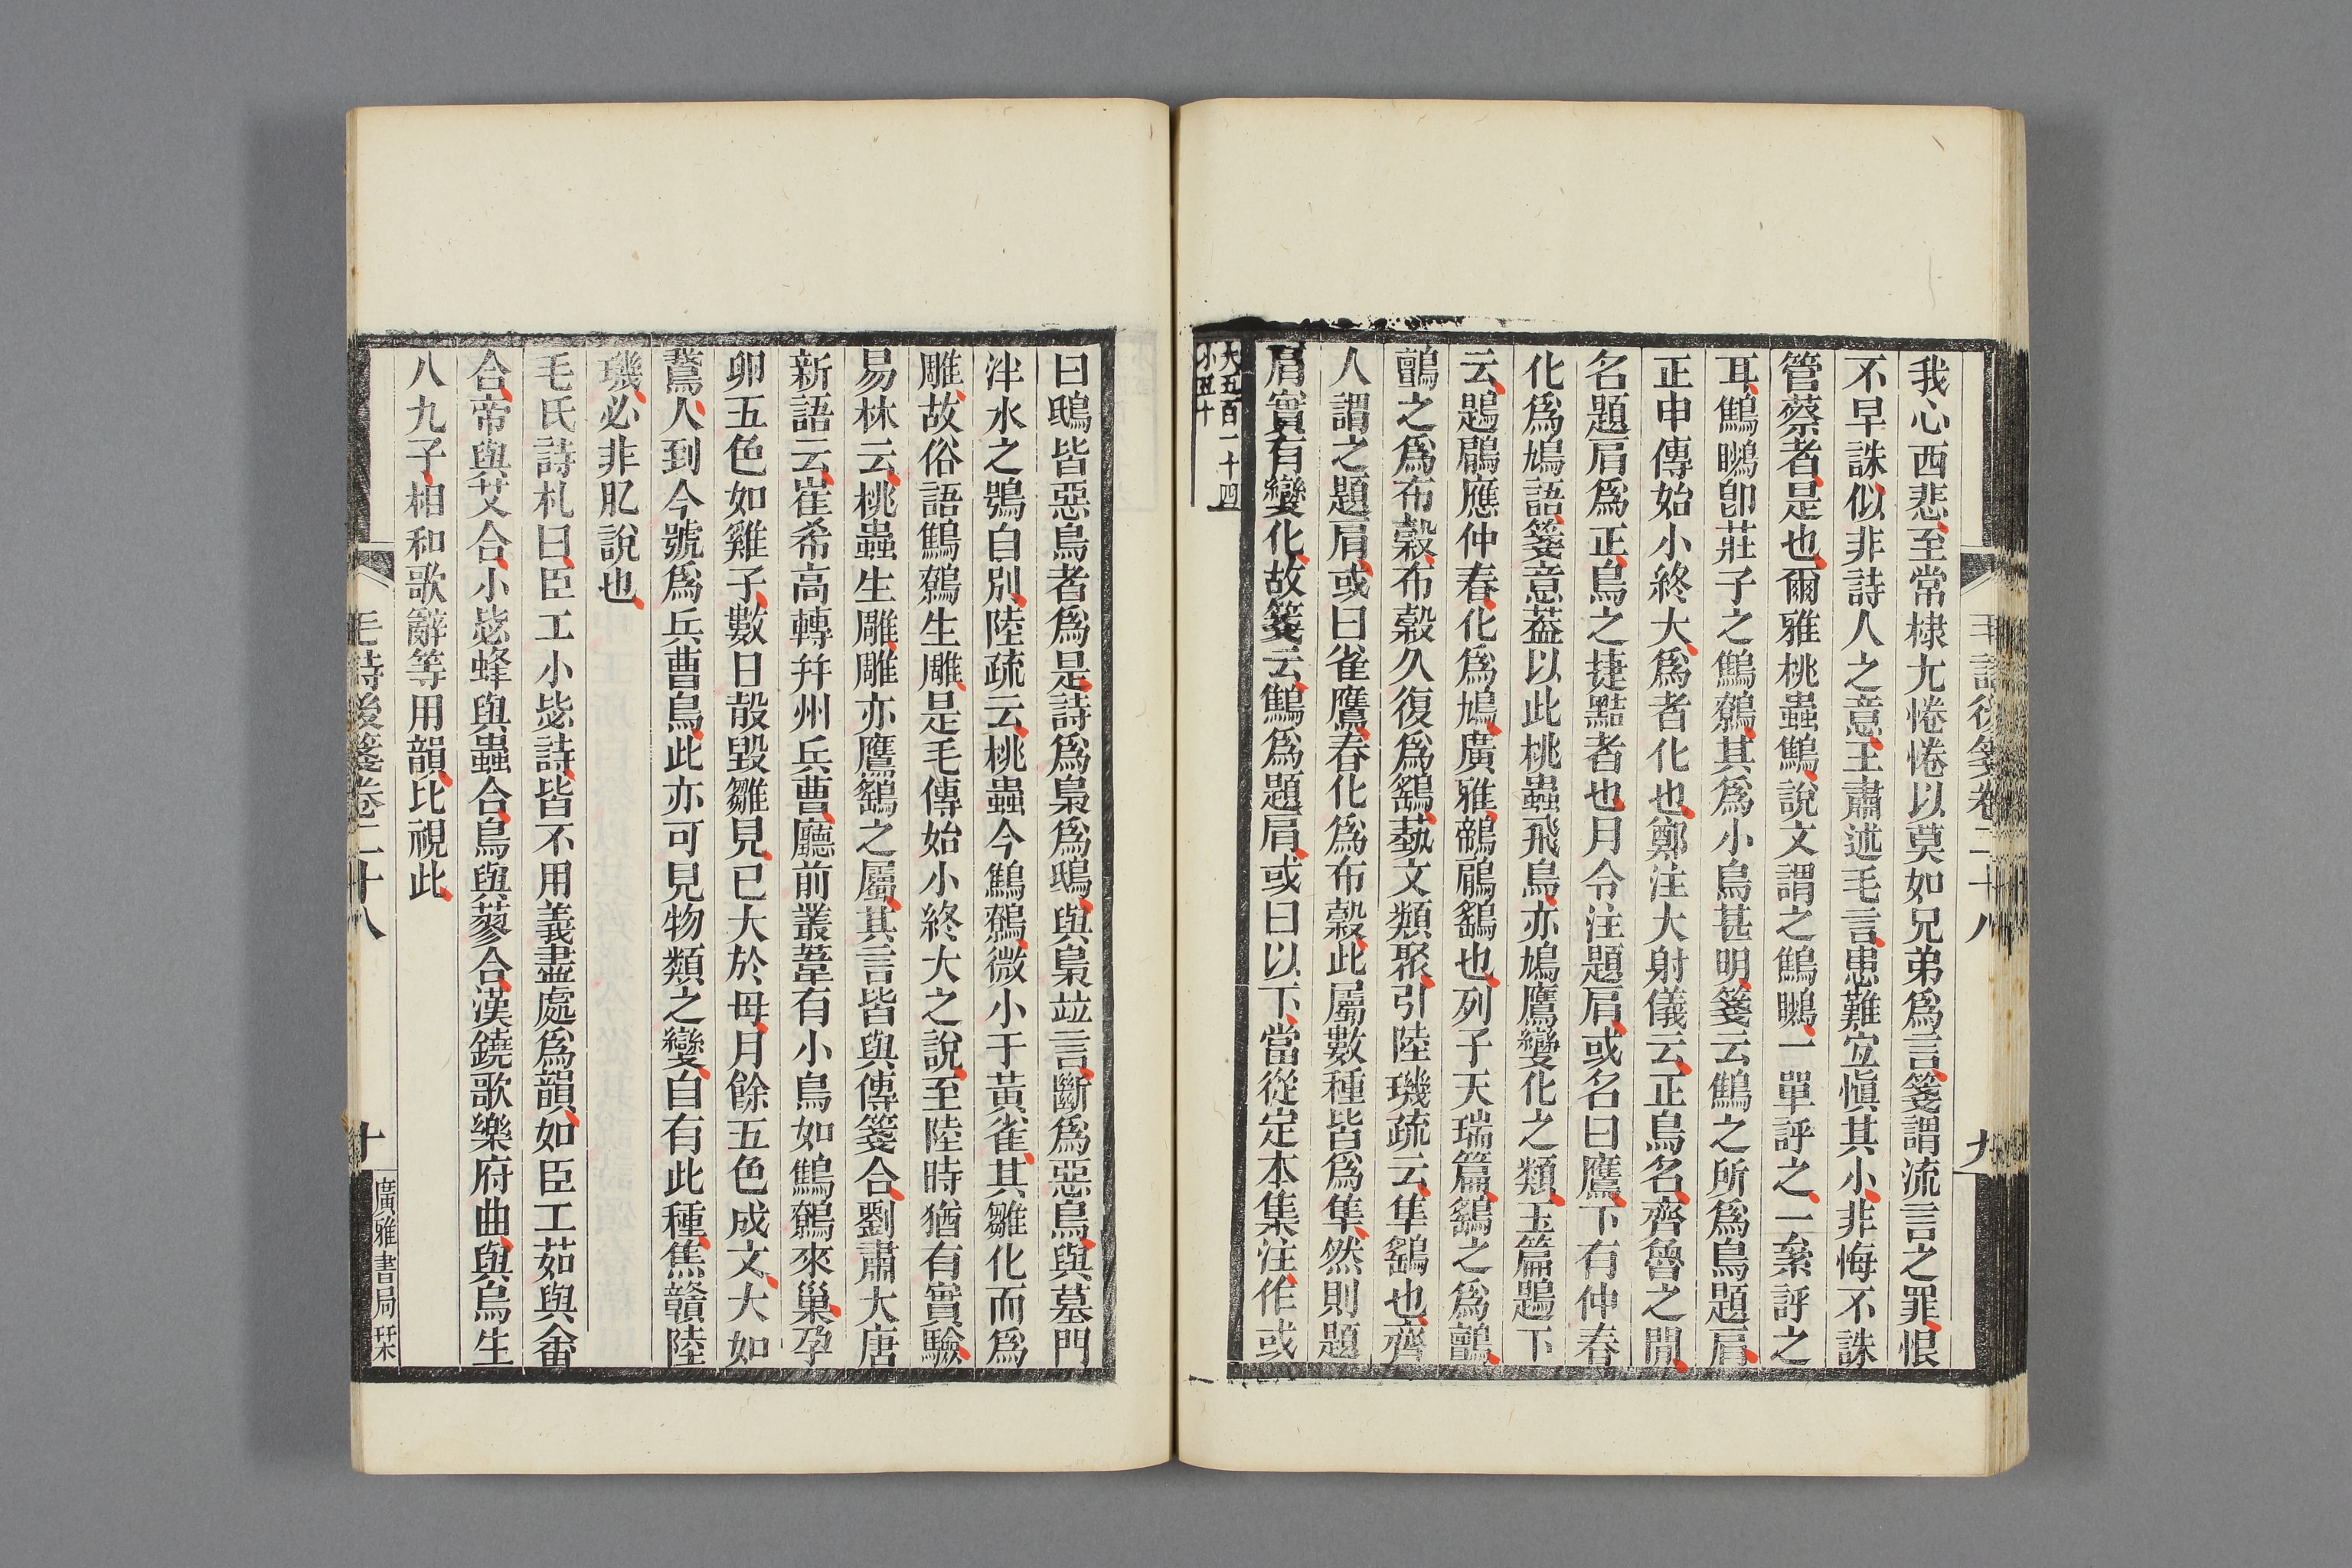 毛詩後箋卷二十八
九
我心西悲至常棣尤惓惓以莫如兄弟爲言箋謂流言之罪恨
不早誅似非詩人之意王肅述毛言患難宜愼其小非悔不誅
管蔡者是也爾雅桃蟲鷦說文謂之鷦䳟一單評之一絫評之
耳鷦䳟卽莊子之鷦鷯其爲小鳥甚明箋云鷦之所爲鳥題肩
正申傳始小終大爲者化也鄭注大射儀云正鳥名齊魯之閒
名題肩爲正鳥之捷黠者也月令注題肩或名曰鷹下有仲春
化爲鳩語箋意葢以此桃蟲飛鳥亦鳩鷹變化之類玉篇鶗下
云鶗鵳應仲春化爲鳩廣雅鶙鵳鷂也列子天瑞篇鷂之爲鸇
鸇之爲布穀布穀久復爲鷂蓺文類聚引陸璣疏云隼鷂也齊
人謂之題肩或曰雀鷹春化爲布穀此屬數種皆爲隼然則題
肩實有變化故箋云鷦爲題肩或曰以下當從定本集注作或
大五百一十四
小五十
曰鴟皆惡鳥者爲是詩爲梟爲鴟與梟竝言斷爲惡鳥與墓門
泮水之鴞自別陸疏云桃蟲今鷦鷯微小于黃雀其雛化而爲
雕故俗語鷦鷯生雕是毛傳始小終大之說至陸時猶有實驗
易林云桃蟲生雕雕亦鷹鷂之屬其言皆與傳箋合劉肅大唐
新語云崔希高轉幷州兵曹廳前叢葦有小鳥如鷦鷯來巢孕
卵五色如雞子數日㲉毀雛見已大於母月餘五色成文大如
鶩人到今號爲兵曹鳥此亦可見物類之變自有此種焦贛陸
璣必非肊說也
毛氏詩札曰臣工小毖詩皆不用義盡處爲韻如臣工茹與畬
合帝與艾合小毖蜂與蟲合鳥與蓼合漢鐃歌樂府曲與烏生
八九子相和歌辭等用韻比視此
毛詩後箋卷二十八
十
廣雅書局栞